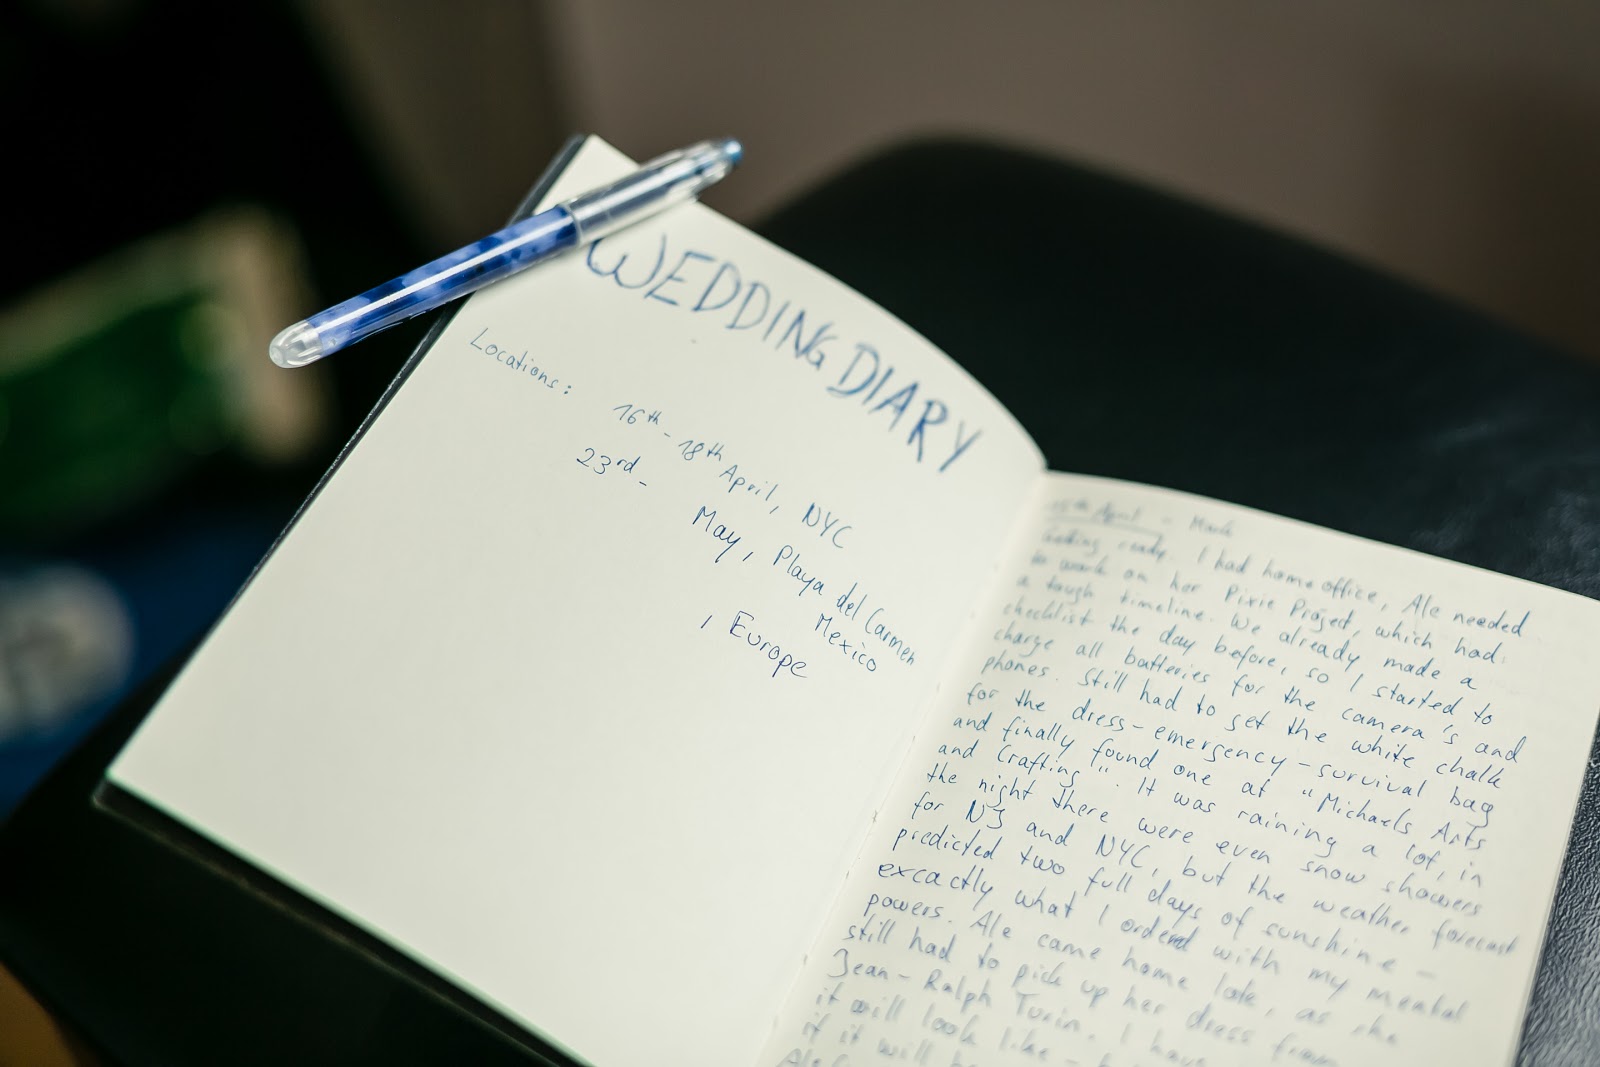 WEDDING DIARY
Locations:
16th - 18th April, NYC
23rd -
May, Playa del Carmen
Mexico
, Europe
15th April - Mark
Getting ready. I had home office, Ale needed
to work on her Pixie Project, which had
a tough timeline. We already made a
checklist the day before, so I started to
charge all batteries for the camera's and
phones. Still had to get the white chalk
for the dress-emergency-survival bag
and finally found one at "Michaels Arts
and Crafting". It was raining a lot, in
the night there were even snow showers
for NJ and NYC, but the weather forecast
predicted two full days of sunshine -
excactly what I ordered with my mental
powers. Ale came home late, as she
still had to pick up her dress from
Jean-Ralph Turin. I have
it will look like -
if it will be
Ale